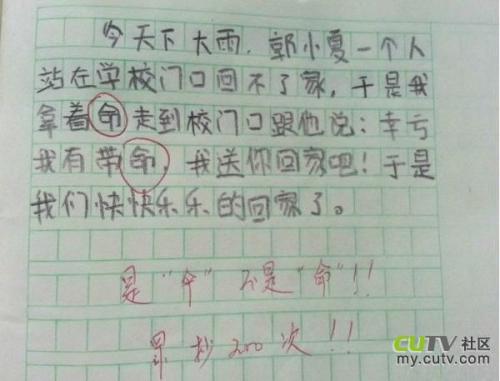 今天下大雨,郭小夏一个人
站在学校门口回不了家,于是我
拿着命走到校门口跟他说:幸亏
我有带命,我送你回家吧!于是
我们快快乐乐的回家了。
是"伞"不是"命"!!
抄200次!!
CUTV 社区
my.cutv.com